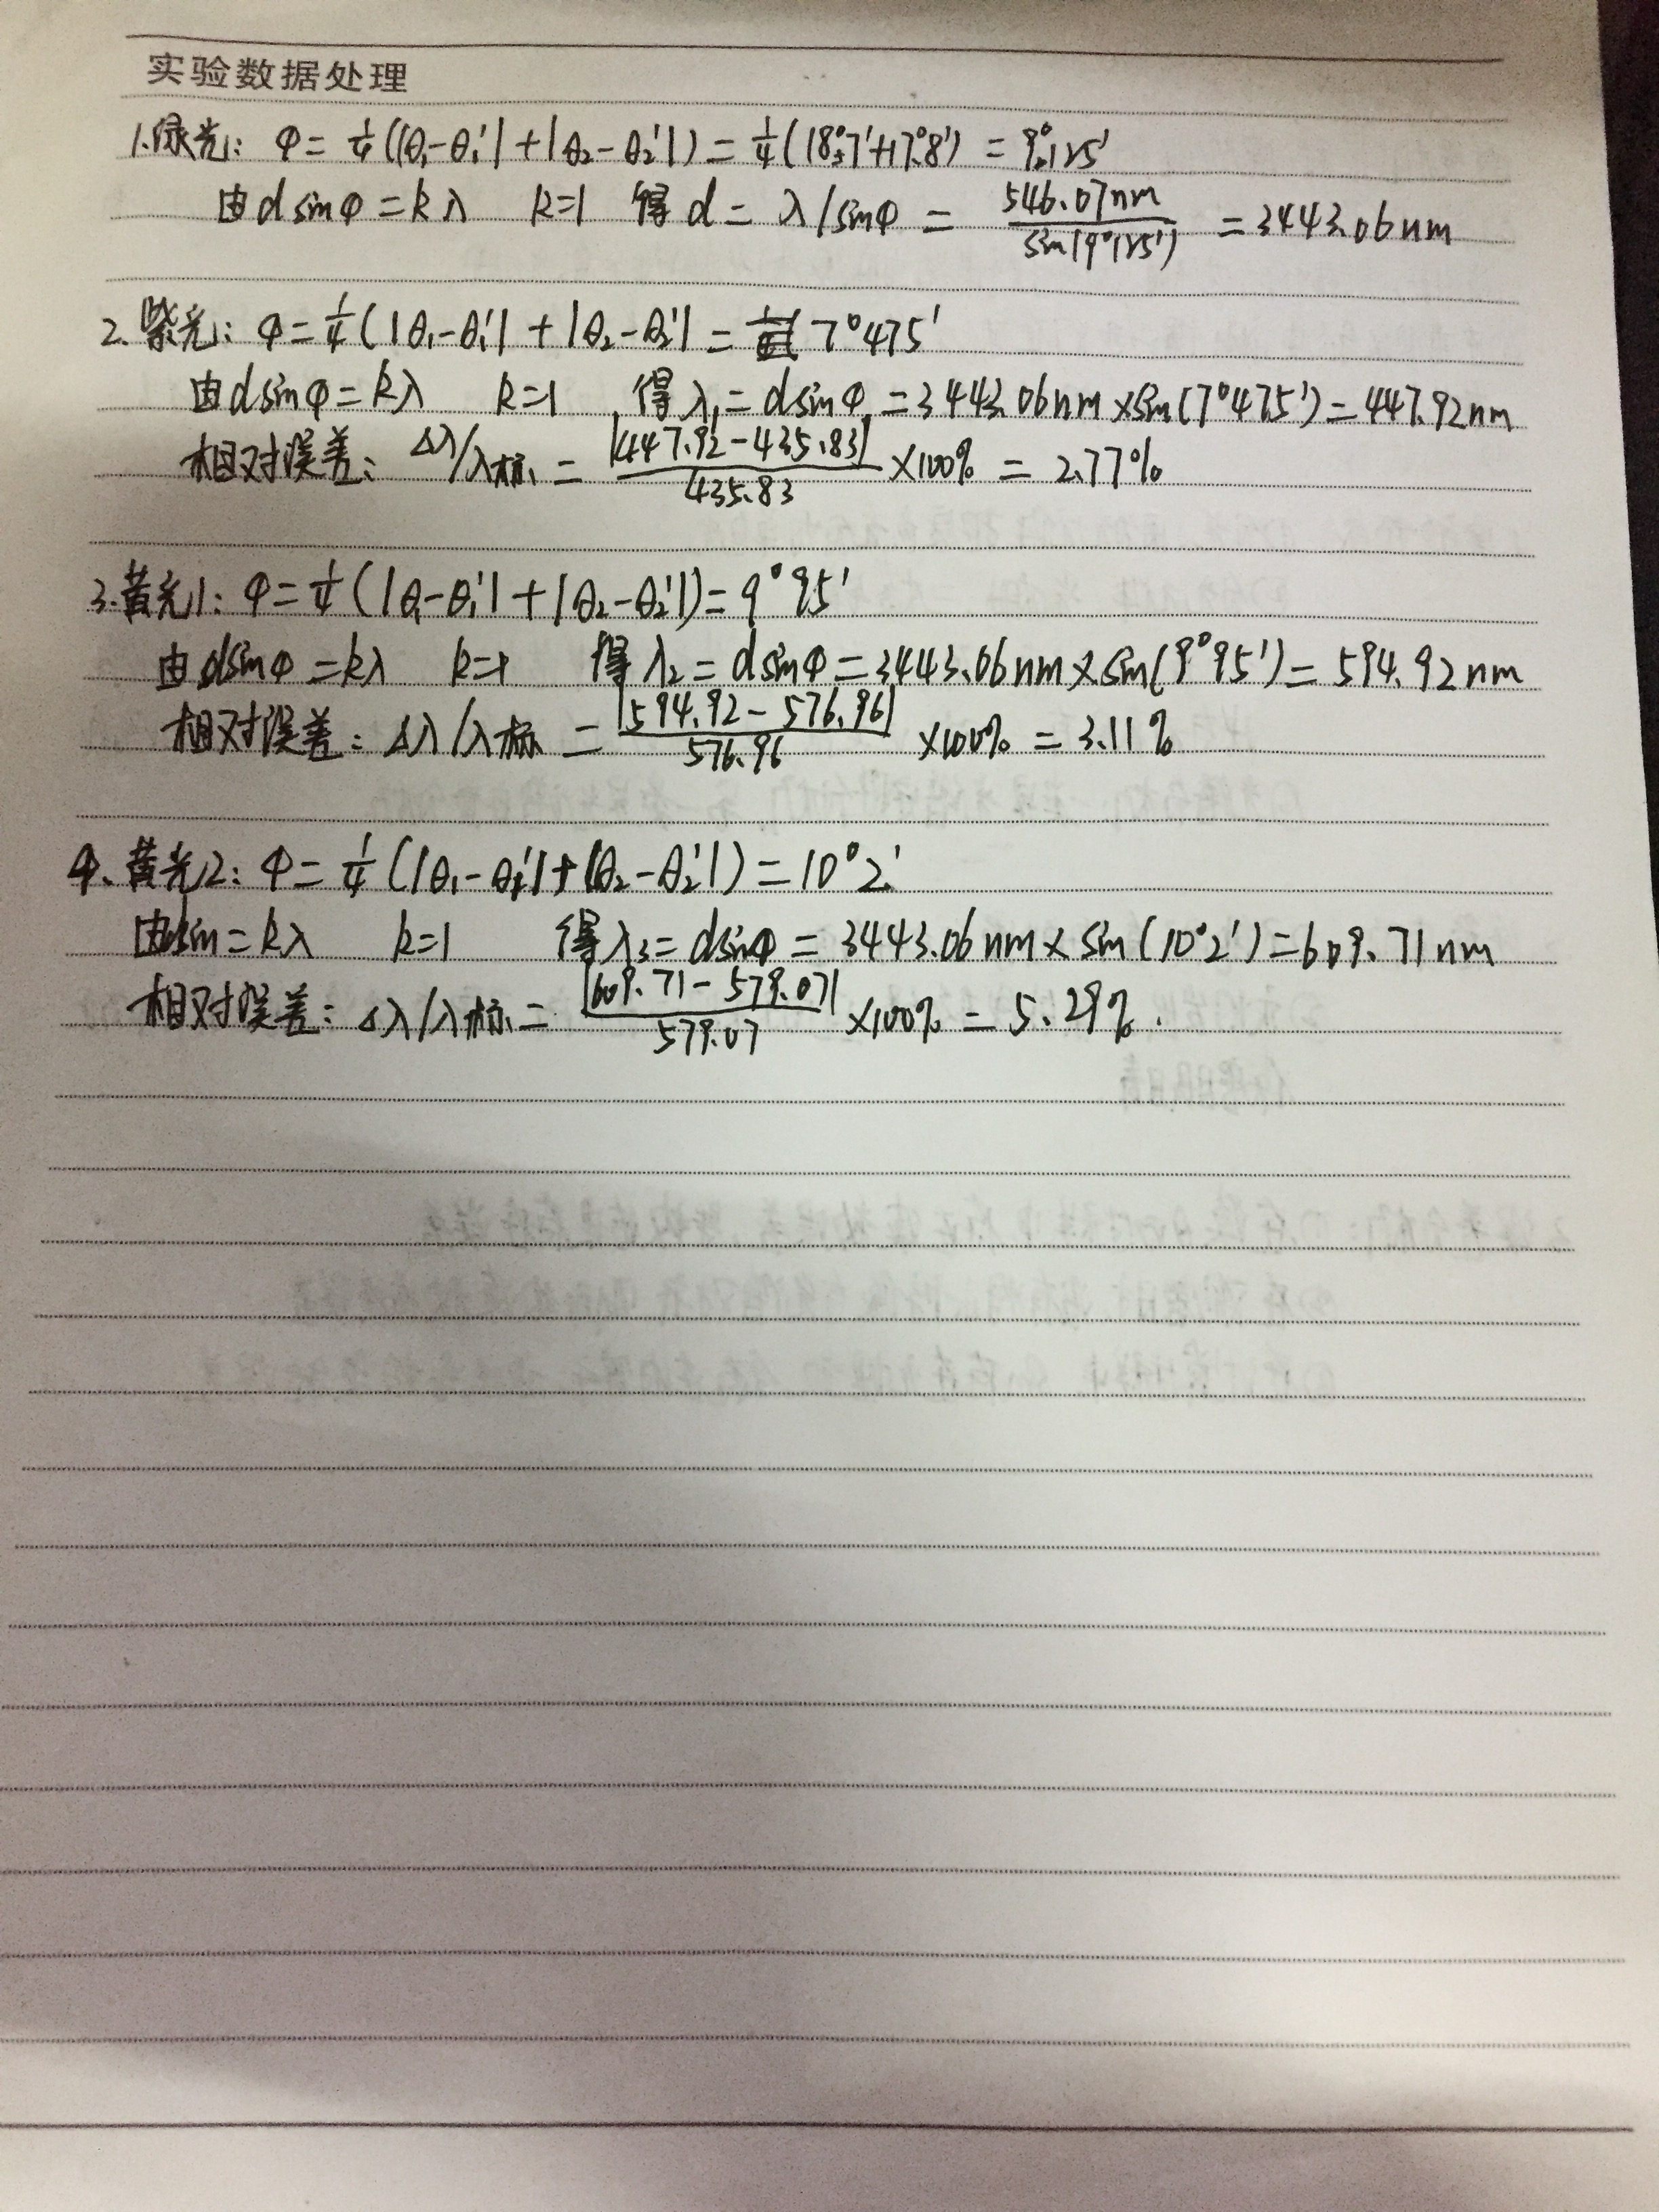 实验数据处理
1.绿光: φ = 1/4(|θ₁-θ₁'|+|θ₂-θ₂'|) = 1/4(18°37'+17°8') = 9°125'
由dsinφ=kλ k=1 得 d = λ/sinφ = 546.07nm/sin(9°125') = 3443.06nm
2.紫光: φ = 1/4(|θ₁-θ₁'|+|θ₂-θ₂'| = 7°475'
由dsinφ=kλ k=1 得λ₁=dsinφ₁=3443.06nm×sin(7°475')=447.92nm
相对误差: Δλ/λ标 = |447.92-435.83|/435.83 ×100% = 2.77%
3.黄光1: φ = 1/4(|θ₁-θ₁'|+|θ₂-θ₂'|)=9°95'
由dsinφ=kλ k=1 得λ₂=dsinφ=3443.06nm×sin(9°95')=594.92nm
相对误差: Δλ/λ标 = |594.92-576.96|/576.96 ×100% = 3.11%
4.黄光2: φ = 1/4(|θ₁-θ₁'|+|θ₂-θ₂'|)=10°2'
由dsin=kλ k=1 得λ₃=dsinφ=3443.06nm×sin(10°2')=609.71nm
相对误差: Δλ/λ标 = |609.71-579.07|/579.07 ×100% = 5.29%.